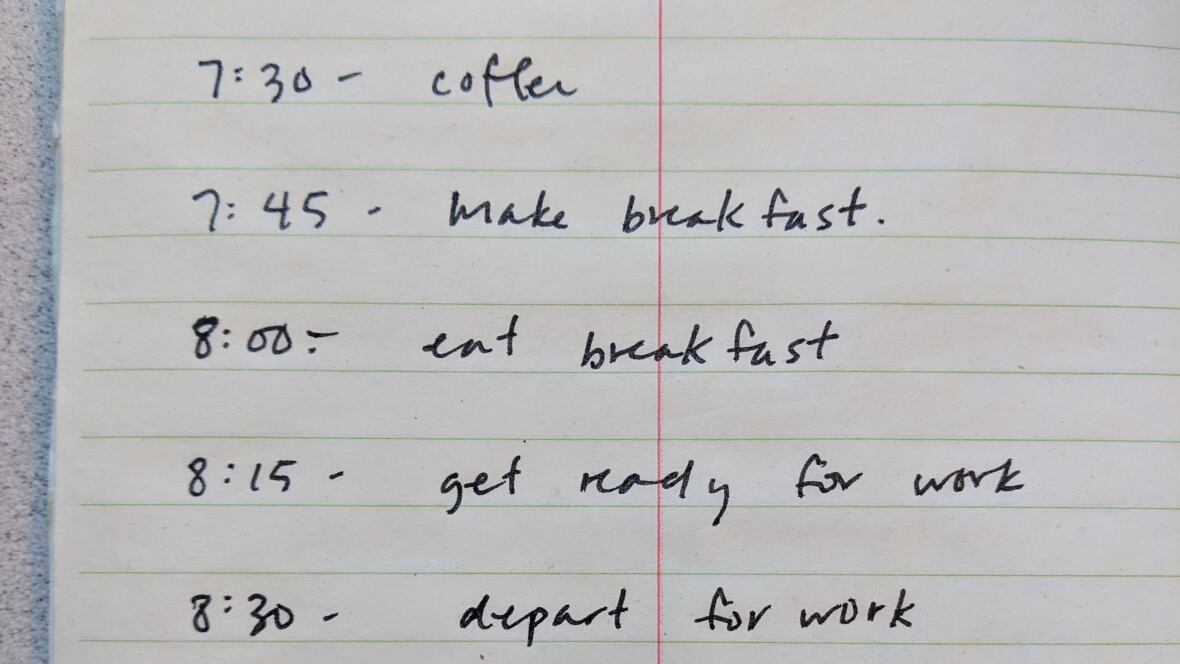 7:30 - coffee
7:45 - make breakfast.
8:00 - eat breakfast
8:15 - get ready for work
8:30 - depart for work